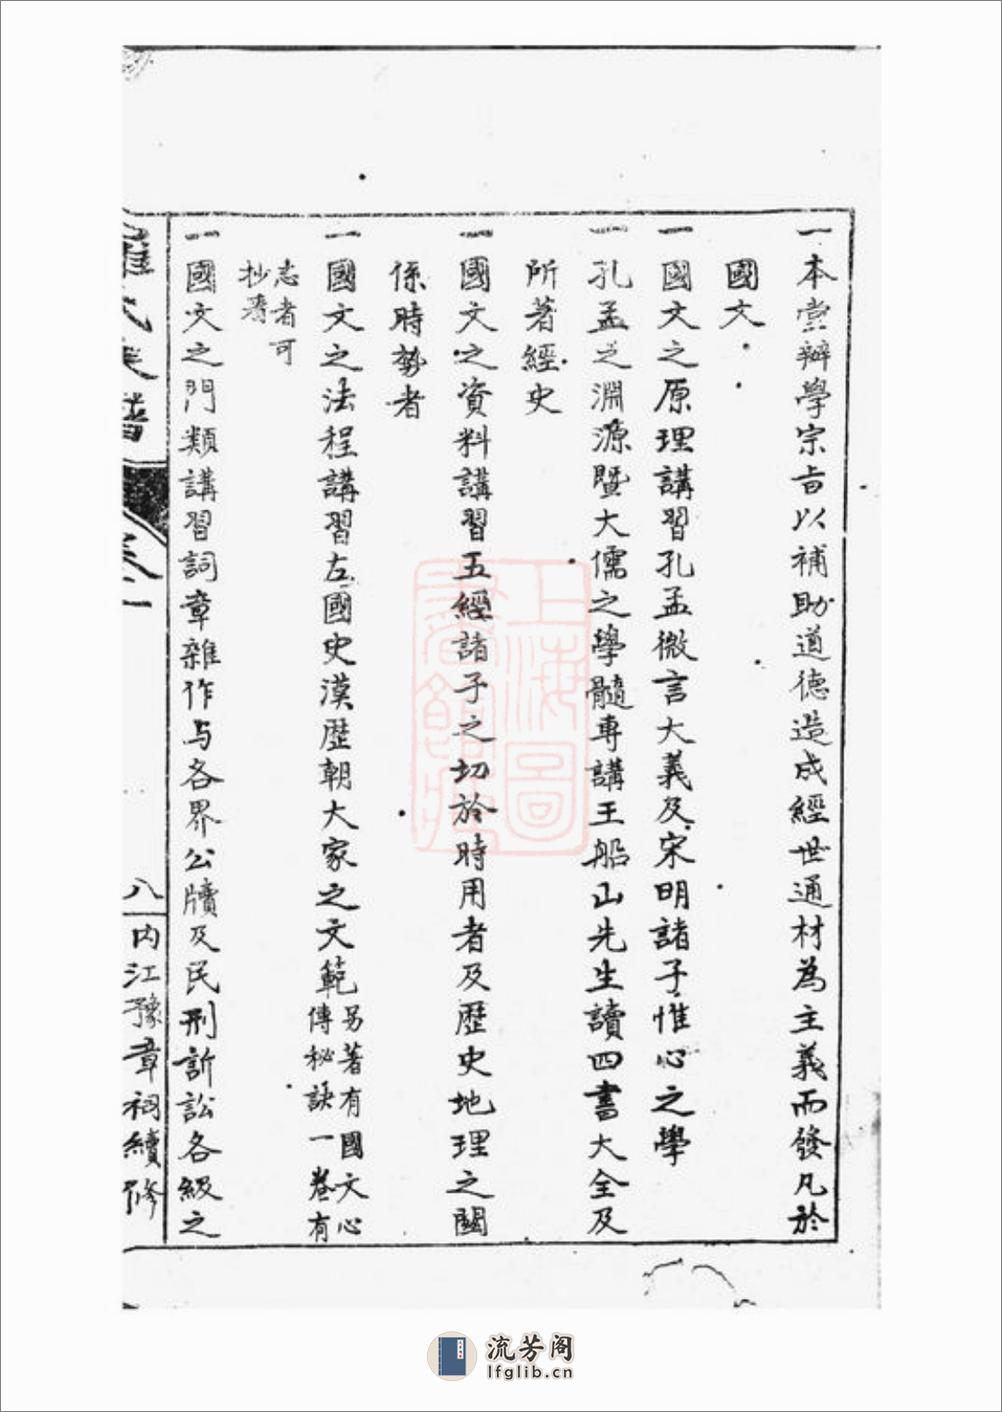 一本堂辦學宗旨以補助道德造成經世通材為主義而發凡於
國文
一國文之原理講習孔孟微言大義及宋明諸子惟心之學
一孔孟之淵源暨大儒之學髓專講王船山先生讀四書大全及
所著經史
一國文之資料講習五經諸子之切於時用者及歷史地理之關
係時勢者
一國文之法程講習左國史漢歷朝大家之文範
另著有國文心
傳秘訣一卷有
志者可
抄習
一國文之門類講習詞章雜作与各界公牘及民刑訴訟各級之
羅氏族譜
卷一
八
內江豫章祠續修
上海圖
書館藏
流芳阁
lfglib.cn